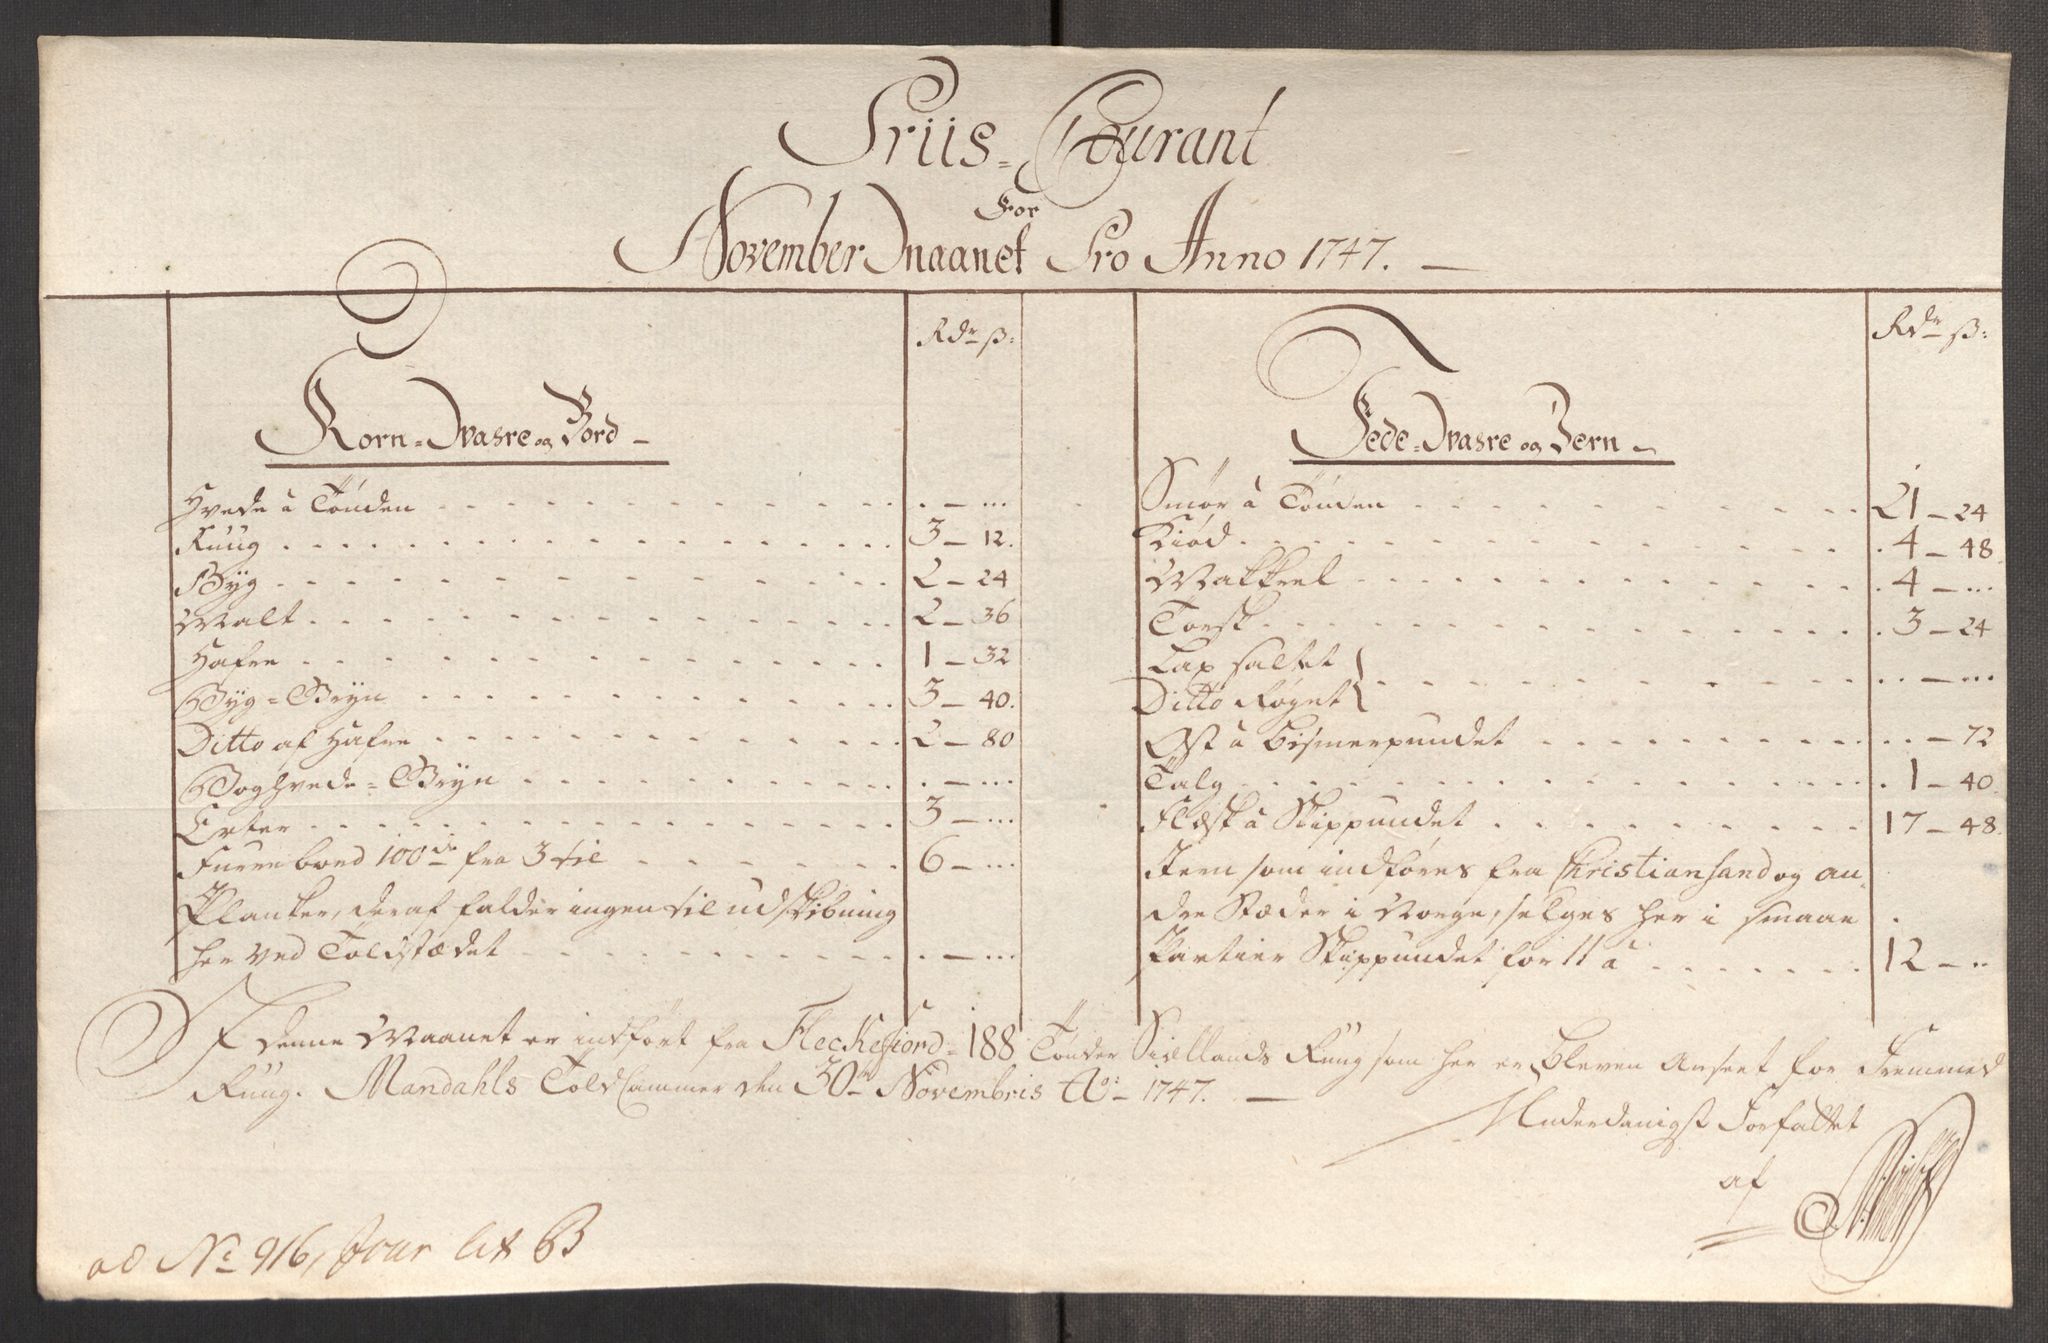 Priis-Courant
For
November Maanet Pro Anno 1747.
Rdr ß:
Korn-Vahre og Bord
Hvede a Tønden . - ...
Ruug 3 - 12.
Byg 2 - 24
Malt 2 - 36
Hafre 1 - 32
Byg-Gryn 3 - 40.
Ditto af Hafre 2 - 80
Boghvede-Gryn . - ...
Erter 3 - ...
Furre bord 100de fra 3 til 6 - ...
Planker, deraf falder ingen til udskibning
her ved Toldstædet . - ...
Rdr ß:
Fede-Vahre og Jern
Smør à Tønden 21 - 24
Kiød 4 - 48
Makkrel 4 - ...
Torsk 3 - 24
Lax saltet
Ditto Røget . . - ...
Ost à bismerpundet . . - 72
Talg 1 - 40.
Flesk à Skippundet 17 - 48
Jern som indføres fra Christiansand og an-
dre Stæder i Norge, selges her i smaae
Partier Skippundet for 11 à 12 - ..
I denne Maanet er indført fra Fleckefiord 188 Tønder Siellands Ruug som her er bleven anseet for Fremmed
Ruug. Mandahls Told Cammer den 30te Novembris Ao: 1747.
Underdanigst Forfattet
af
ad No 916, Jour lit B